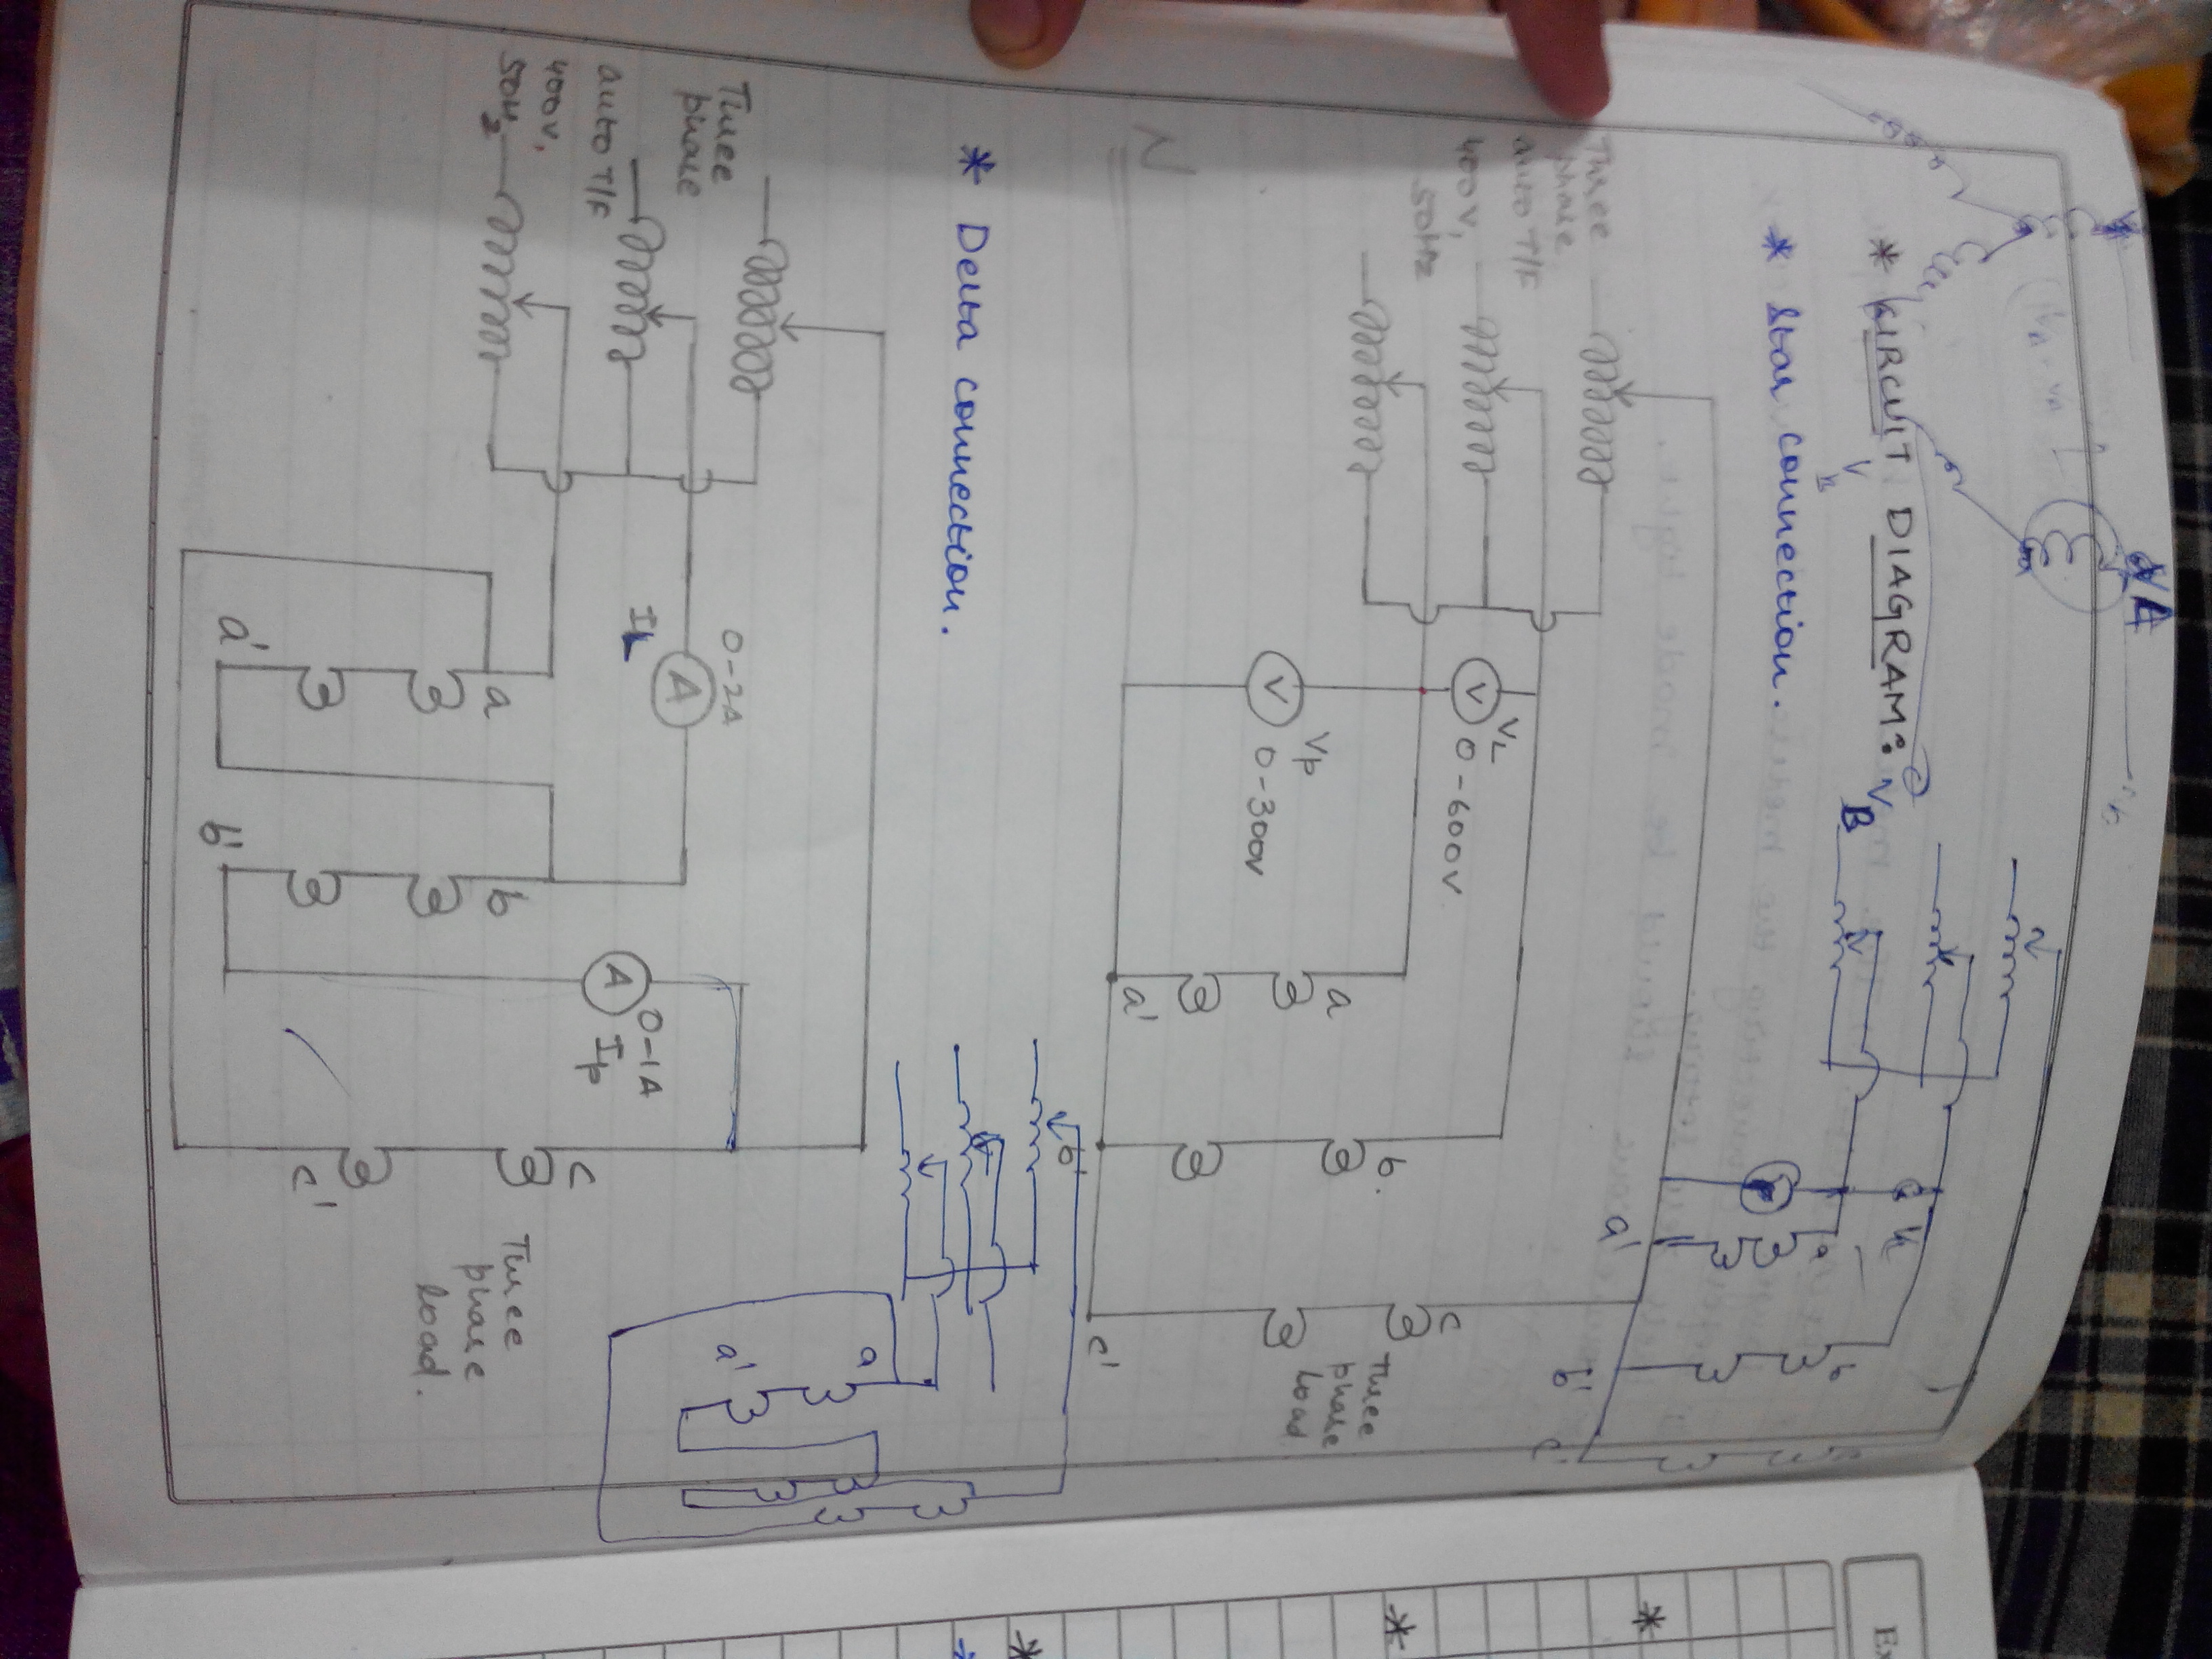 * CIRCUIT DIAGRAM:
* Star connection.
B
a
a'
b
b'
c'
Three
phase
auto T/F
400V,
50Hz
VL
0-600V
Vp
0-300V
V
V
N
a
a'
b.
c
c'
Three
phase
load
* Delta connection.
Three
phase
auto T/F
400V,
50Hz
0-2A
A
IL
a
a'
b
b'
A
0-1A
Ip
c
c'
Three
phase
load.
a
a'
Ex
*
*
*